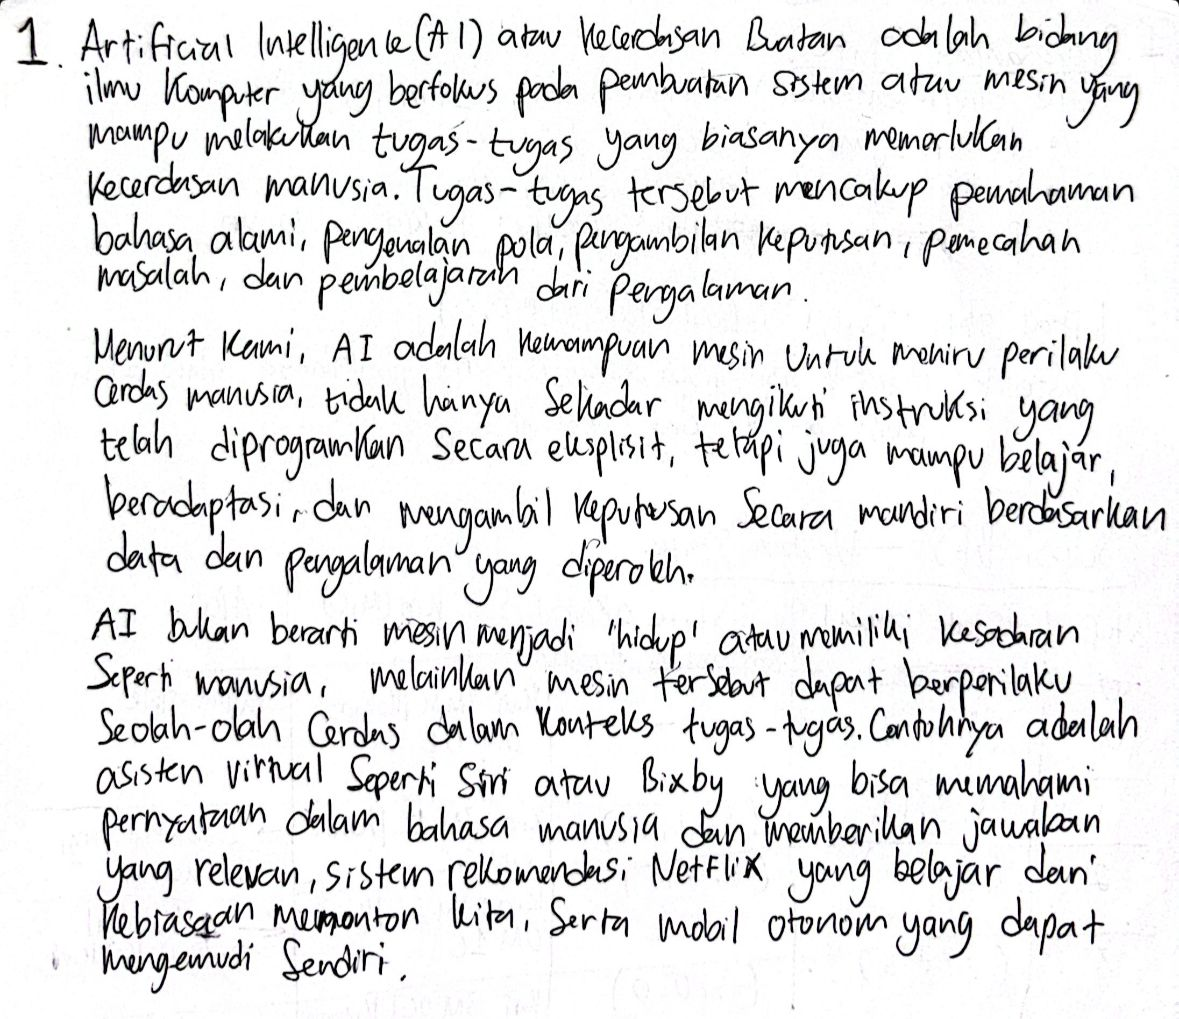 1. Artificial Intelligence (AI) atau Kecerdasan Buatan adalah bidang
ilmu Komputer yang berfokus pada pembuatan sistem atau mesin yang
mampu melakukan tugas-tugas yang biasanya memerlukan
Kecerdasan manusia. Tugas-tugas tersebut mencakup pemahaman
bahasa alami, pengenalan pola, pengambilan keputusan, pemecahan
masalah, dan pembelajaran dari pengalaman.
Menurut Kami, AI adalah kemampuan mesin untuk meniru perilaku
Cerdas manusia, tidak hanya Sekadar mengikuti instruksi yang
telah diprogramkan Secara eksplisit, tetapi juga mampu belajar,
beradaptasi, dan mengambil keputusan Secara mandiri berdasarkan
data dan pengalaman yang diperoleh.
AI bukan berarti mesin menjadi 'hidup' atau memiliki kesadaran
Seperti manusia, melainkan mesin tersebut dapat berperilaku
Seolah-olah Cerdas dalam Konteks tugas-tugas. Contohnya adalah
asisten virtual Seperti Siri atau Bixby yang bisa memahami
pernyataan dalam bahasa manusia dan memberikan jawaban
yang relevan, sistem rekomendasi Netflix yang belajar dari
kebiasaan menonton kita, Serta mobil otonom yang dapat
mengemudi Sendiri.